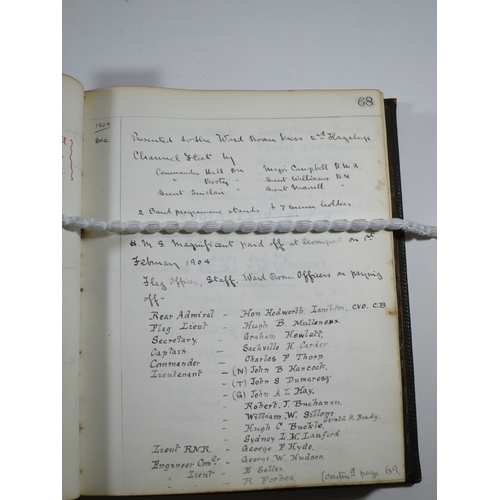 68
1903
Dec
Presented to the Ward Room Mess 2nd Flagship
Channel Fleet by
Commander Hall RN Major Campbell R.M.A.
" Booty - Lieut Williams RN
Lieut Sinclair " Lieut Norvell "
2 Band programme stands + 7 menu holders
H M S Magnificent paid off at Devonport on 1st
February 1904
Flag Officer, Staff, Ward Room Officers on paying
off -
Rear Admiral - Hon Hedworth Lambton, CVO. C.B.
Flag Lieut - Hugh B. Mulleneux.
Secretary - Graham Hewlett.
Captain - Sackville H Carden
Commander - Charles P Thorp
Lieutenant - (N) John B Hancock.
- (T) John S Dumaresq.
- (G) John A I. Hay.
- Robert. T. Buchanan.
- William. W. Sillem
- Hugh C. Buckle. Gerald H. Brady.
- Sydney I. H. Lawford
Lieut RNR. - George F Hyde.
Engineer Comdr - George W. Hudson.
" Lieut - E Sellex
" " - R Forbes
(contind page 69